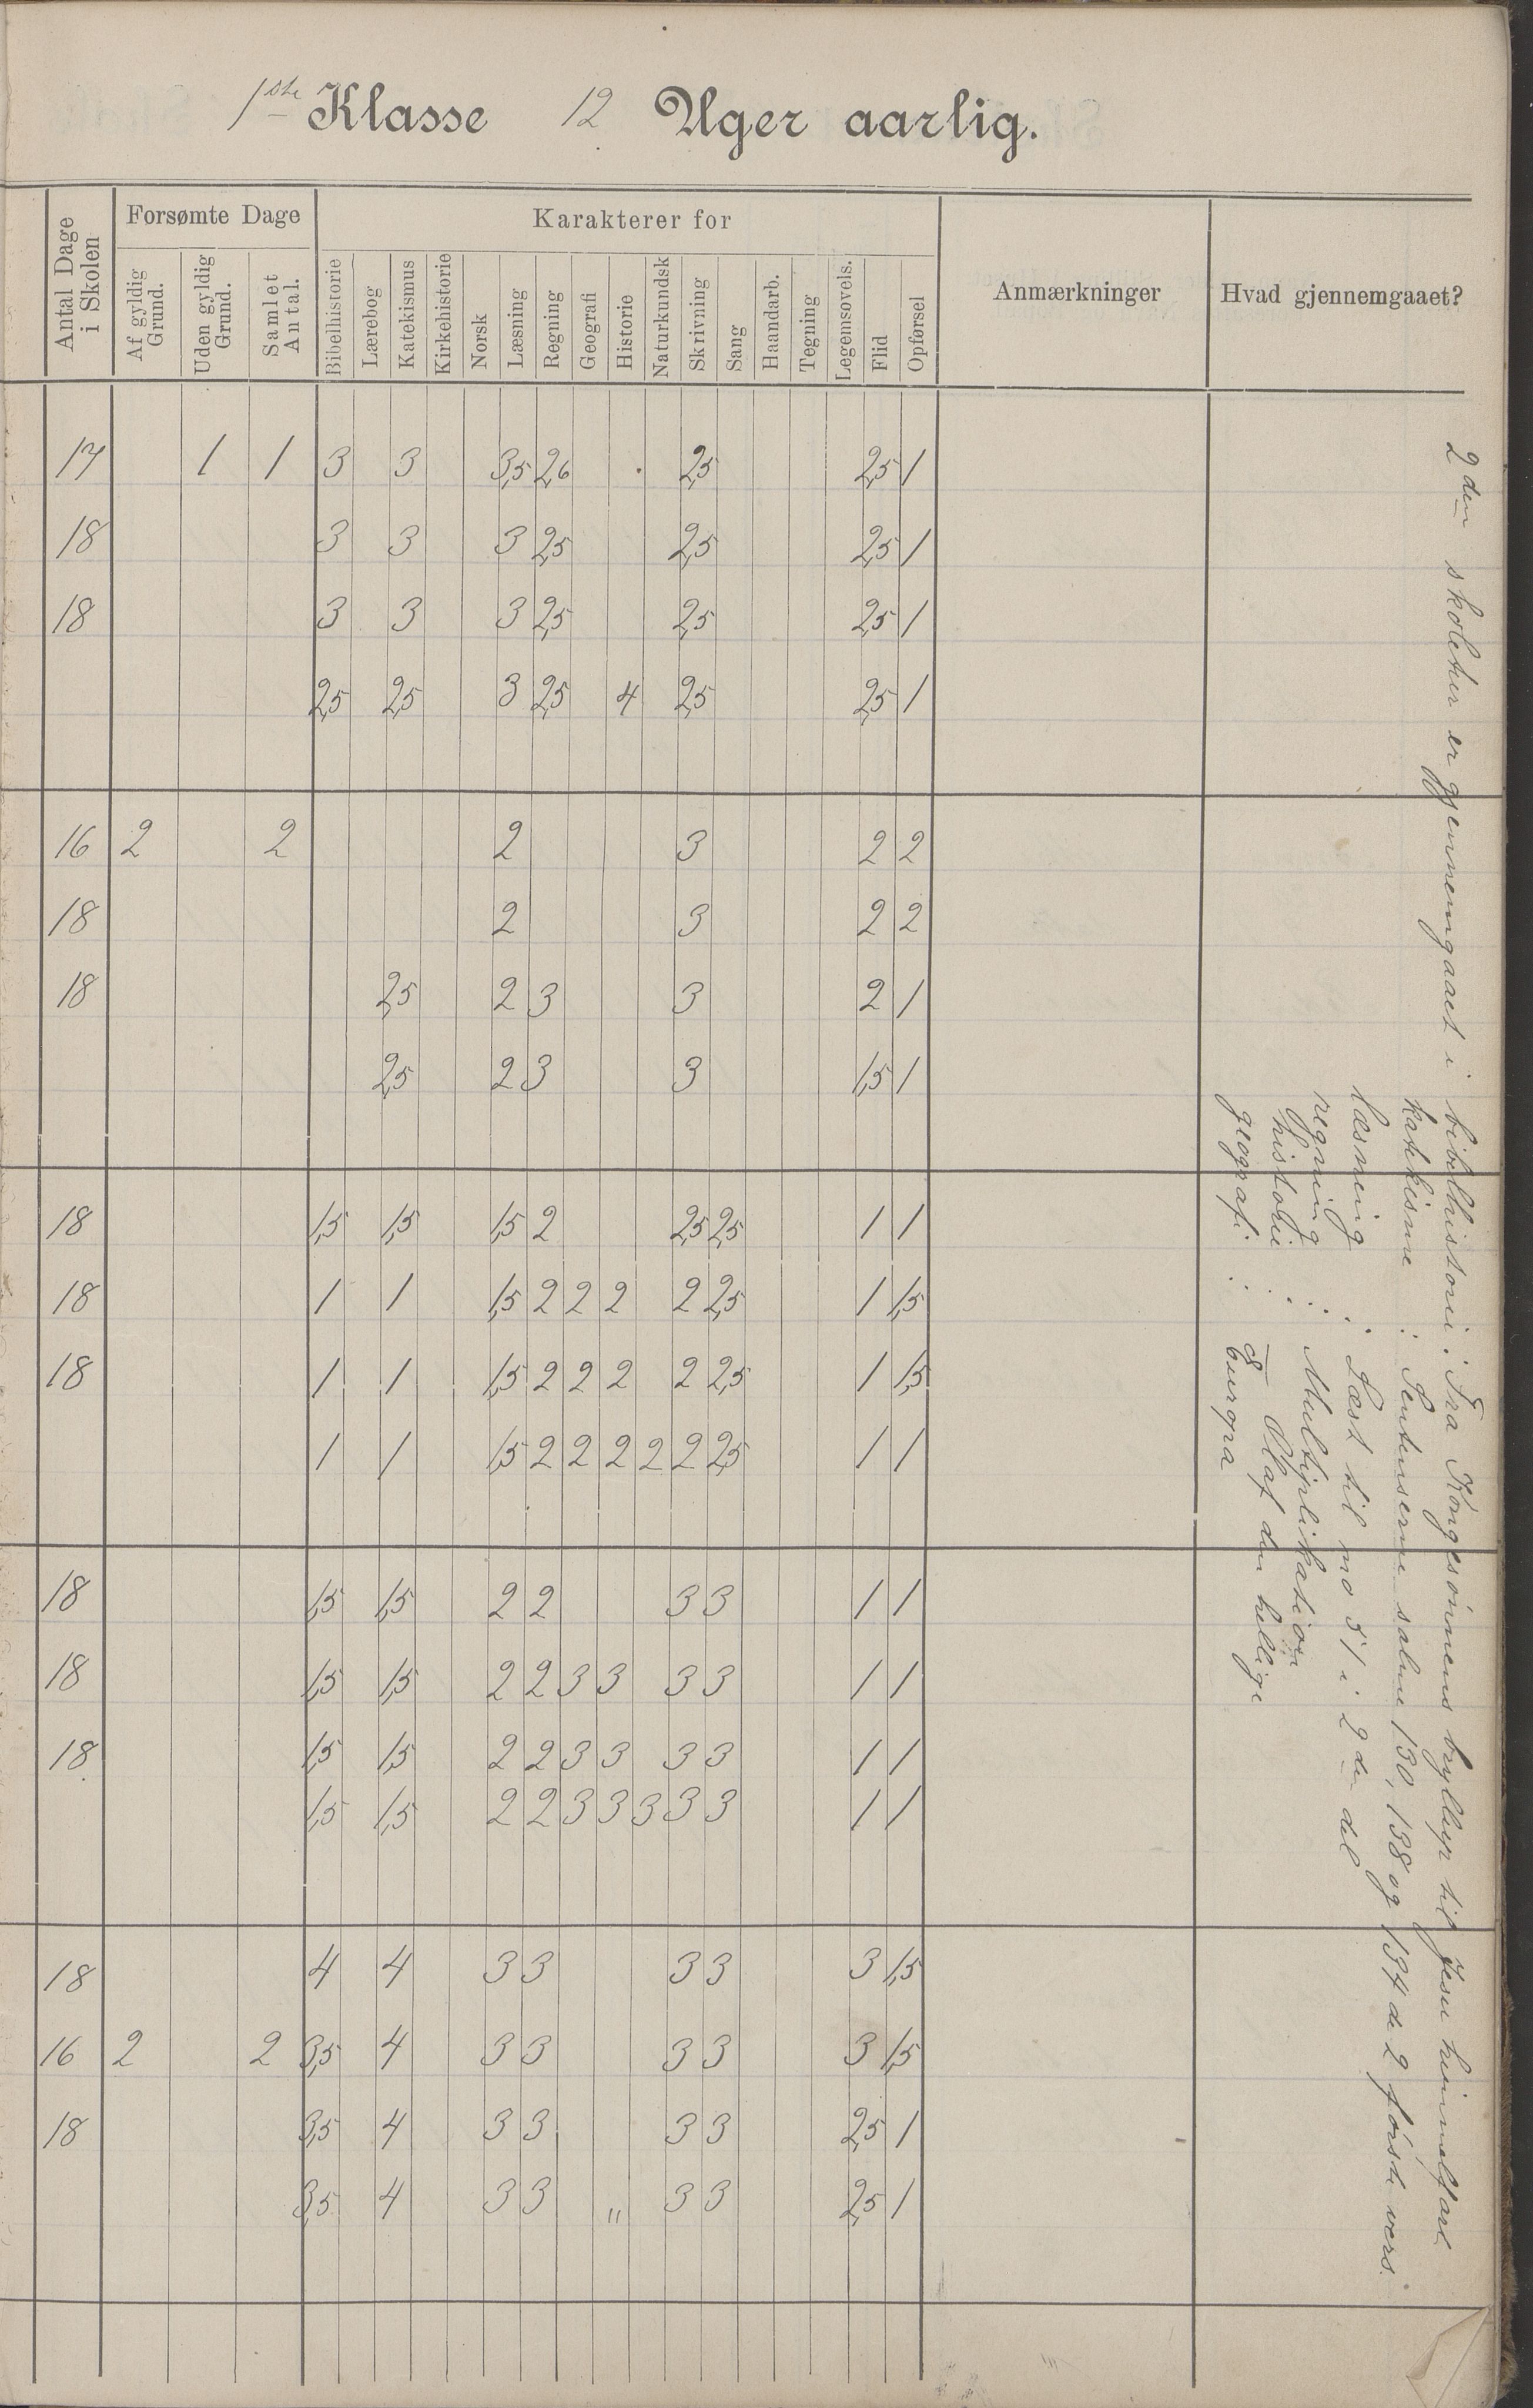 1ste Klasse 12 Uger aarlig.
Antal Dage i Skolen
Forsømte Dage
Af gyldig Grund.
Uden gyldig Grund.
Samlet Antal.
Karakterer for
Bibelhistorie
Lærebog
Katekismus
Kirkehistorie
Norsk
Læsning
Regning
Geografi
Historie
Naturkundsk
Skrivning
Sang
Haandarb.
Tegning
Legemsøvels.
Flid
Opførsel
Anmærkninger
Hvad gjennemgaaet?
17 1 1 3 3 3,5 2,6 2,5 2,5 1
18 3 3 3 2,5 2,5 2,5 1
18 3 3 3 2,5 2,5 2,5 1
2,5 2,5 3 2,5 4 2,5 2,5 1
16 2 2 2 3 2 2
18 2 3 2 2
18 2,5 2 3 3 2 1
2,5 2 3 3 1,5 1
18 1,5 1,5 1,5 2 2,5 2,5 1 1
18 1 1 1,5 2 2 2 2 2,5 1 1,5
18 1 1 1,5 2 2 2 2 2,5 1 1,5
1 1 1,5 2 2 2 2 2 2,5 1 1
18 1,5 1,5 2 2 3 3 1 1
18 1,5 1,5 2 2 3 3 3 3 1 1
18 1,5 1,5 2 2 3 3 3 3 1 1
1,5 1,5 2 2 3 3 3 3 3 1 1
18 4 4 3 3 3 3 3 1,5
16 2 2 3,5 4 3 3 3 3 3 1,5
18 3,5 4 3 3 3 3 2,5 1
3,5 4 3 3 " 3 3 2,5 1
2den skoletur er gjennemgaaet i bibelhistorie: Fra Kongesønnens bryllup til Jesu himmelfart
katekisme : salme 130, 138 og 134 de 2 første vers.
læsning : Læst til no 51 i 2den del
regning : Multiplikation
historie : Olaf den hellige
geografi : Europa